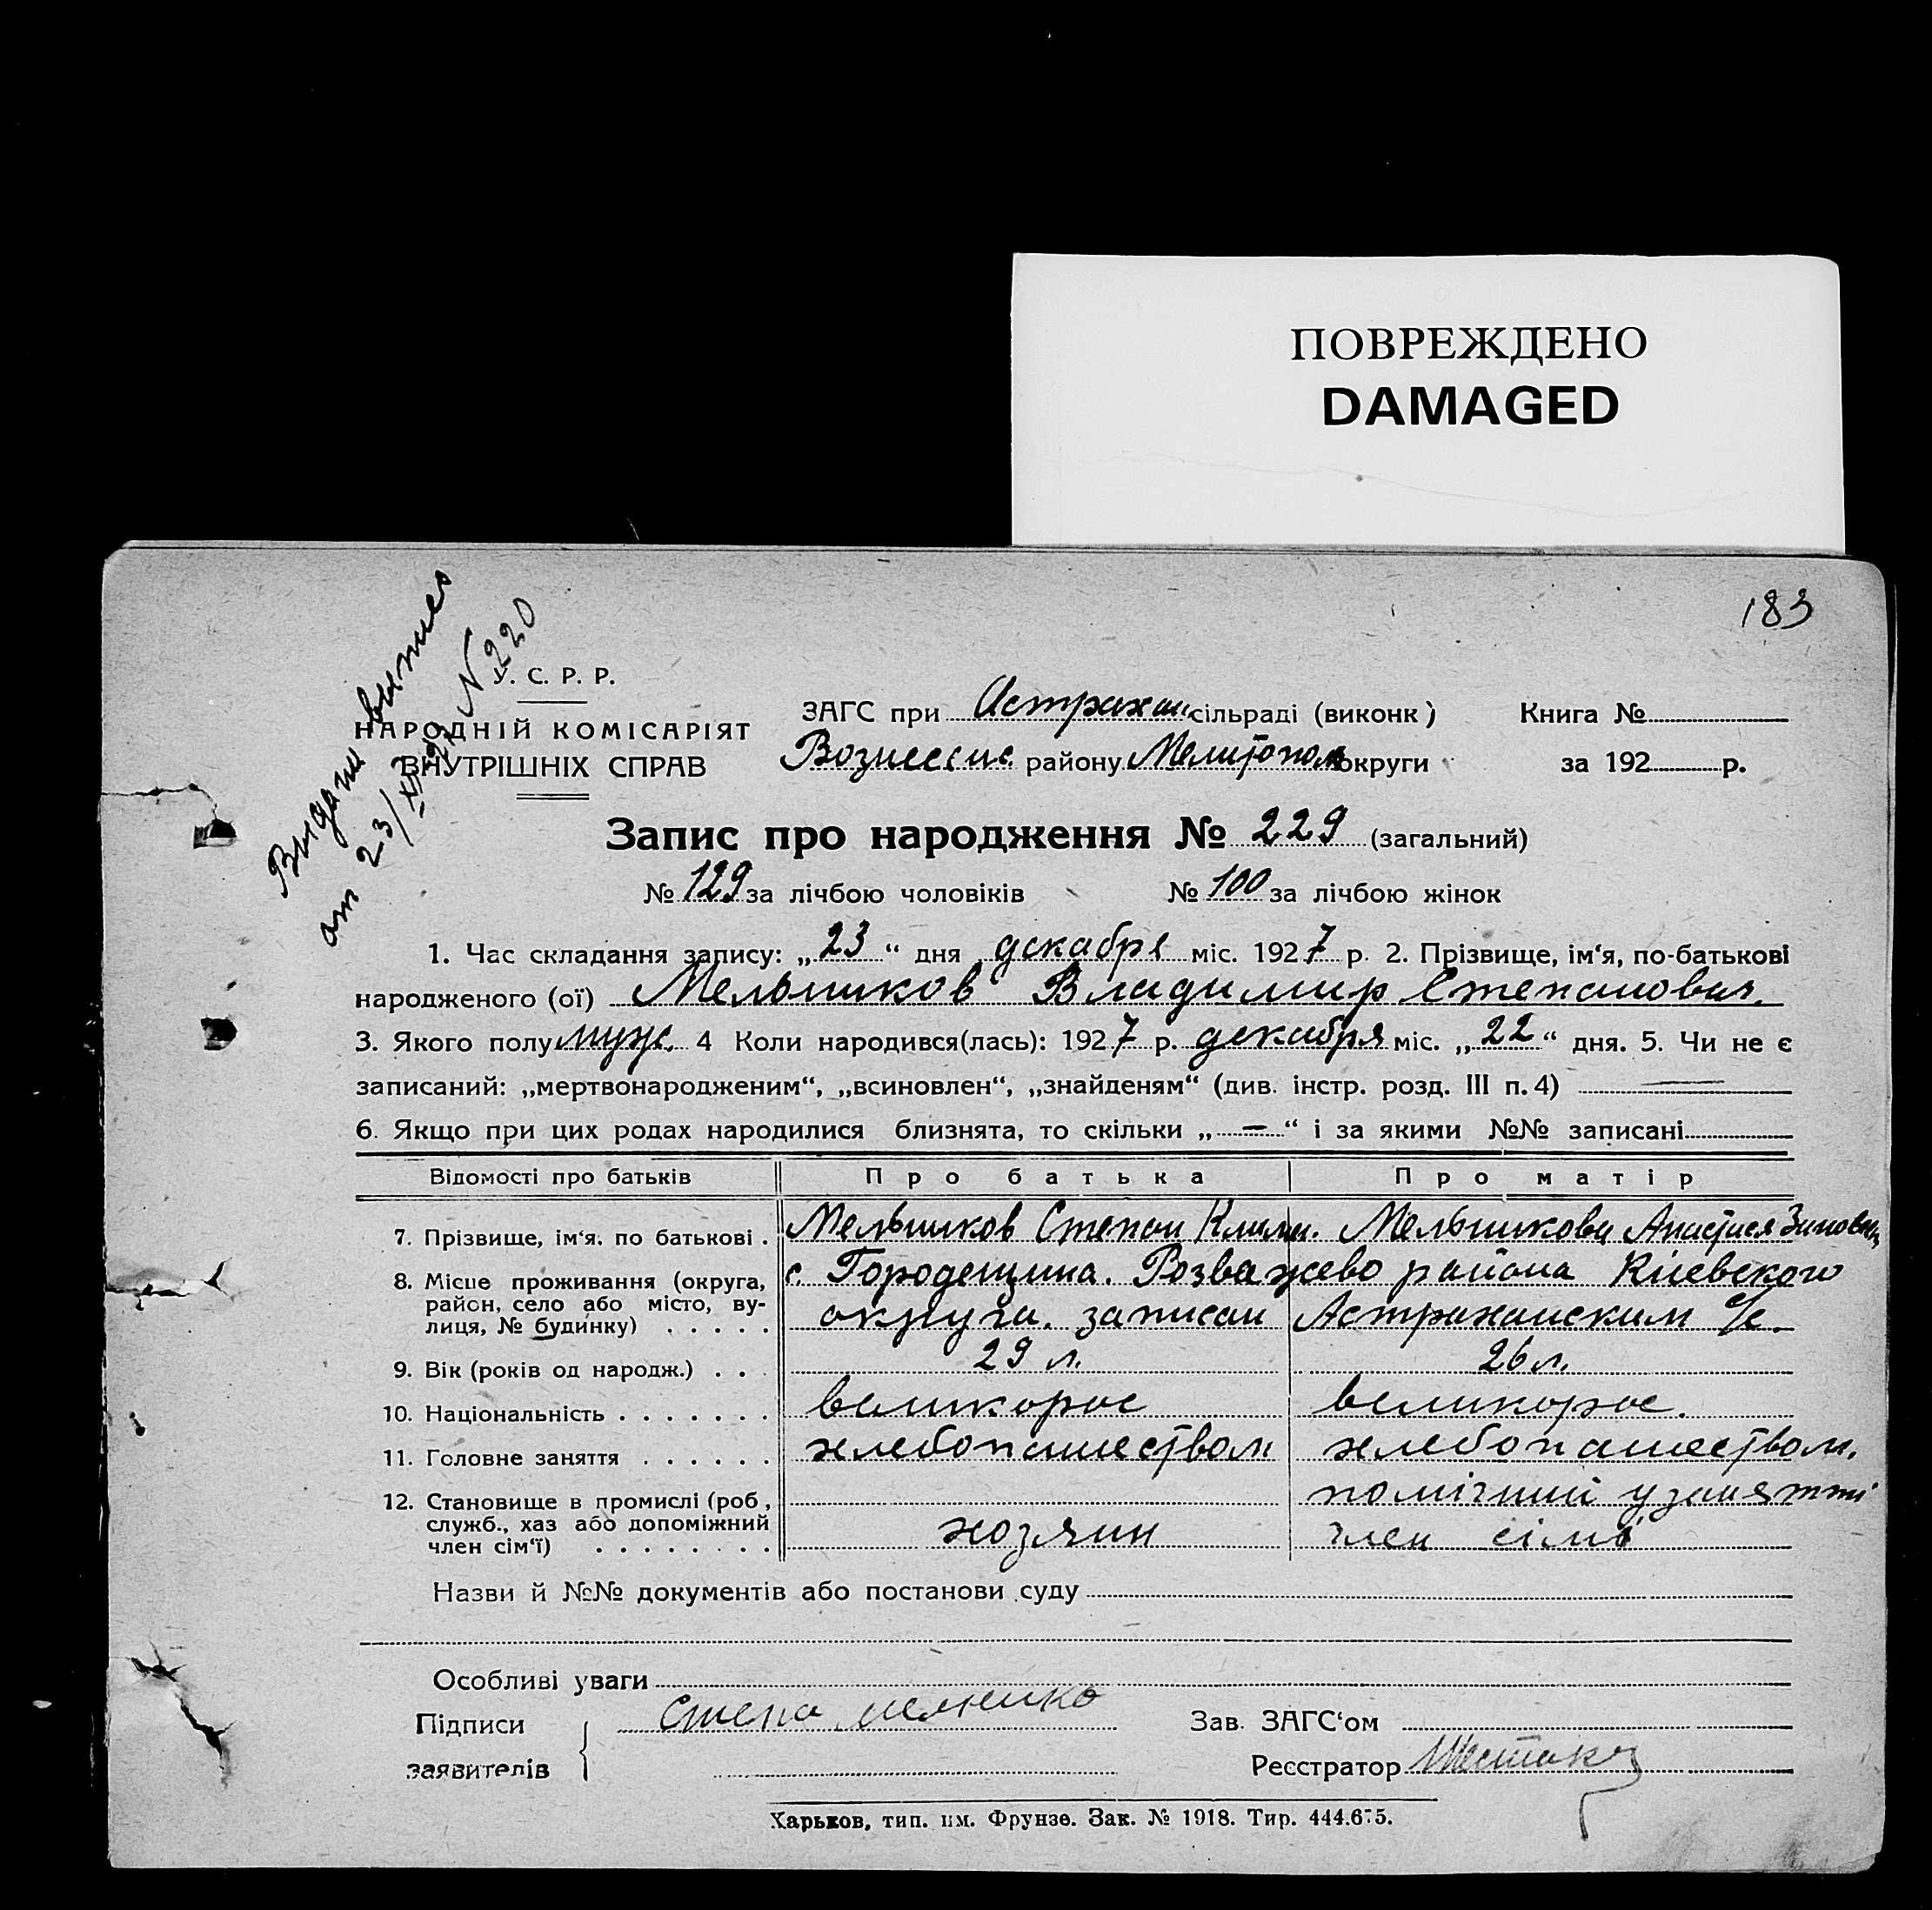 ПОВРЕЖДЕНО
DAMAGED
183
Выдан выпись
от 23/XII 27 N 220
У. С. Р. Р.
НАРОДНІЙ КОМІСАРІЯТ
ВНУТРІШНІХ СПРАВ
ЗАГС при Астрахан. сільраді (виконк) Книга №
Вознесенс. району Мелитопол округи за 192 р.
Запис про народження № 229 (загальний)
№ 129 за лічбою чоловіків № 100 за лічбою жінок
1. Час складання запису: „ 23 “ дня декабря міс. 1927 р. 2. Прізвище, ім‘я, по-батькові
народженого (ої) Мельников Владимир Степанович.
3. Якого полу муж. 4 Коли народився(лась): 1927 р. декабря міс. „ 22 “ дня. 5. Чи не є
записаний: „мертвонародженим“, „всиновлен“, „знайденям“ (див. інстр. розд. III п. 4) —
6. Якщо при цих родах народилися близнята, то скільки „ — “ і за якими №№ записані
Відомості про батьків Про батька Про матір
7. Прізвище, ім‘я. по батькові . Мельников Степан Клим. Мельникова Анастася Зиновьевн
8. Місце проживання (округа, с. Городещина. Розважево района Киевского
район, село або місто, ву-
лиця, № будинку) . . . . . округа. записан Астраханским с/с.
9. Вік (років од народж.) . . . 29 л. 26 л.
10. Національність . . . . . . . великорос великорос.
11. Головне заняття . . . . . . хлебопашеством хлебопашеством.
12. Становище в промислі (роб, помічний у занятті
служб., хаз або допоміжний
член сім‘ї) . . . . . . . . хозяин член сімї
Назви й №№ документів або постанови суду
Особливі уваги
Підписи
заявителів
Степа мелнико
Зав. ЗАГС‘ом
Реєстратор Шестаков
Харьков, тип. им. Фрунзе. Зак. № 1918. Тир. 444.675.